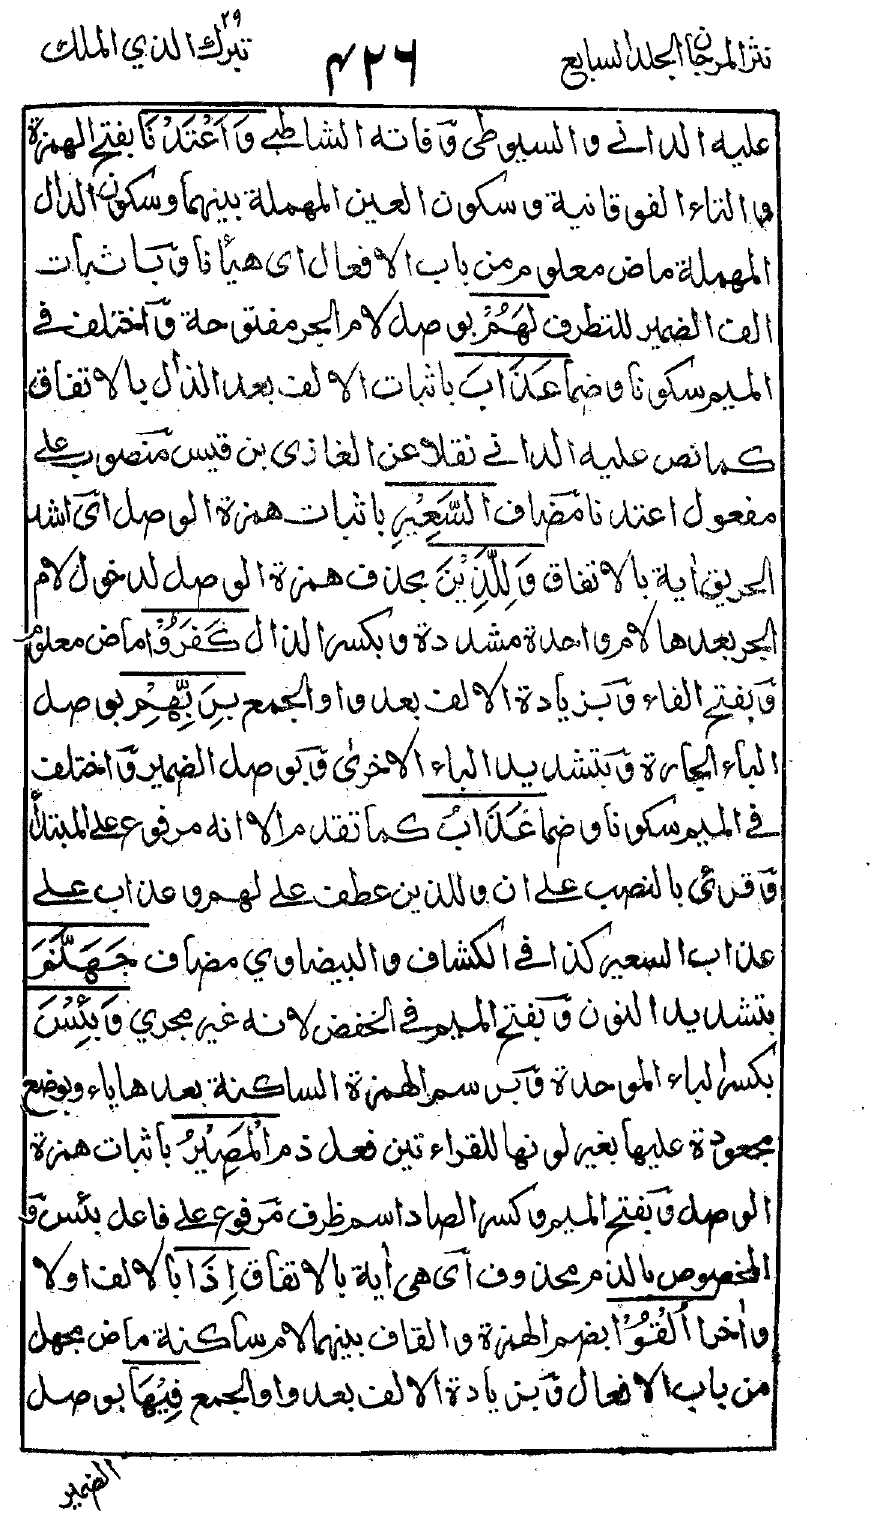 نثر المرجان الجلد السابع
٤٢٦
تبرك الذي الملك ٢٩
عليه الداني والسيوطي وَفاته الشاطبي وَاَعْتَدْنَا بفتح الهمزة
والتاء الفوقانية وسكون العين المهملة بينهما وسكون الدال
المهملة ماض معلوم من باب الافعال اى هيأنا وَباثبات
الف الضمير للتطرف لَهُمْ بوصل لام الجر مفتوحة وَاختلف في
الميم سكونا وضما عَذَابَ باثبات الالف بعد الذال بالاتفاق
كما نص عليه الداني نقلا عن الغازى بن قيس مَنصوب على
مفعول اعتدنا مَضاف السَّعِيْرِ باثبات همزة الوصل اَى اشد
الحريق اٰية بالاتفاق وَلِلَّذِيْنَ بحذف همزة الوصل لدخول لام
الجر بعدها لام واحدة مشددة وبكسر الذال كَفَرُوْا ماض معلوم
وَبفتح الفاء وَبزيادة الالف بعد واو الجمع بِرَبِّهِمْ بوصل
الباء الجارة وَبتشديد الباء الاخرىٰ وَبوصل الضمير وَاختلف
في الميم سكونا وضما عَذَابُ كما تقدم الا انه مرفوع على المبتدأ
وَقرئ بالنصب على ان وللذين عطف على لهم وعذاب على
عذاب السعير كذا في الكشاف والبيضاوي مضاف جَهَنَّمَ
بتشديد النون وَبفتح الميم في الخفض لانه غير مجري وَبِئْسَ
بكسر الباء الموحدة وَبرسم الهمزة الساكنة بعدها ياء وبوضع
مجعودة عليها بغير لونها للقراءتين فعل ذم الْمَصِيْرُ باثبات همزة
الوصل وَبفتح الميم وكسر الصاد اسم ظرف مَرفوع على فاعل بئس وَ
المخصوص بالذم محذوف اَى هى اٰية بالاتفاق اِذَا بالالف اولا
واٰخرا اُلْقُوْا بضم الهمزة والقاف بينهما لام ساكنة ماض مجهل
من باب الافعال وَبزيادة الالف بعد واو الجمع فِيْهَا بوصل
الضمير